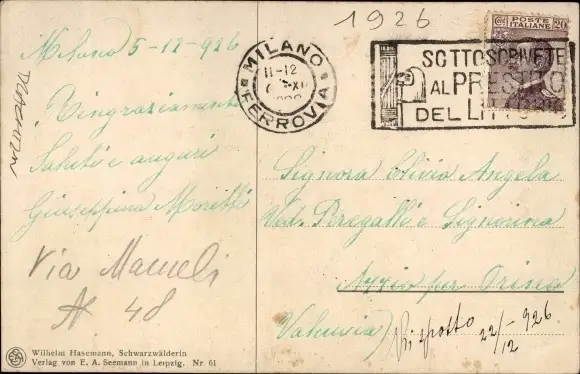 1926
Milano 5-12-926
Ringraziamenti
Saluti e auguri
Giuseppina Moretti
Via Mameli
N 48
MILANO
11-12
FERROVIA
POSTE ITALIANE
20
SOTTOSCRIVETE
AL PRESTITO
DEL LITTORIO
Signora Olivia Angela
Ved. Peregalli e Signorina
per
Risposto 22/12 - 926
Wilhelm Hasemann, Schwarzwälderin
Verlag von E. A. Seemann in Leipzig. Nr 61